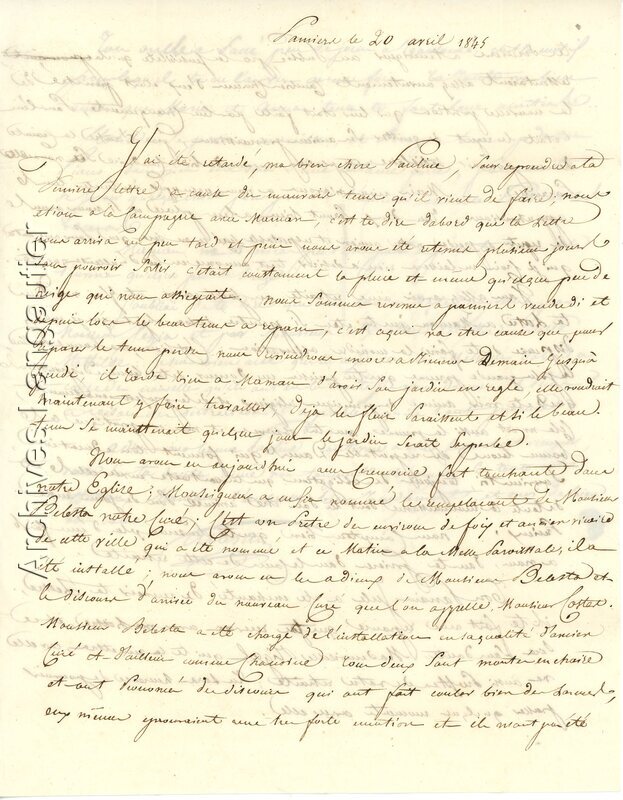 Pamiers le 20 avril 1845
J'ai été retardé, ma bien chère Pauline, pour repondre a ta
derniere lettre a cause du mauvais tems qu'il vient de faire; nous
etions a la Campagne avec Maman, c'est te dire d'abord que ta lettre
nous arriva un peu tard et puis nous avons été retenus plusieurs jours
sans pouvoir sortir, c'etait constament la pluie et meme quelque peu de
neige qui nous assiegeait. Nous sommes revenus a pamiers vendredi et
depuis lors le beau tems a reparu, c'est ce qui va etre cause que pour
reparer le tems perdu nous reviendrons encore a Demain jusqu'a
jeudi il tarde bien a Maman d'avoir son jardin en regle elle voudrait
maintenant y faire travailler deja les fleurs paraissent et si le beau
tems se maintenait quelques jours le jardin serait superbe.
Nous avons eu aujourd'hui une Ceremonie fort touchante dans
notre Eglise; Monseigneur a enfin nommé le remplaçant de Monsieur
Belesta notre Curé; C'est un Prêtre des environs de foix et ancien vicaire
de cette ville qui a été nommé et ce Matin a la Messe Paroissiale, il a
été installé; nous avons eu les adieux de Monsieur Belesta et
le discours d'arrivée du nouveau Curé que l'on appelle Monsieur Costat.
Monsieur Belesta a été chargé de l'installation en sa qualité d'ancien
Curé et d'ailleurs comme Chanoine tous deux sont montés en chaire
et ont prononcé des discours qui ont fait couler bien des larmes,
eux mêmes eprouvaient une tres forte emotion et ils n'ont pas été
Archives Lansautier